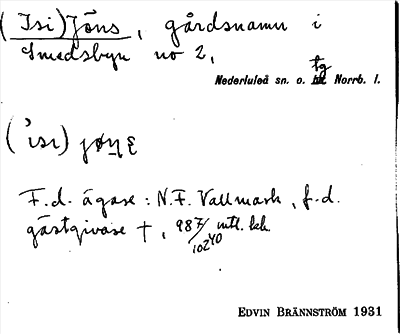 (Isi)Jöns, gårdsnamn i
Smedsbyn no 2,
Nederluleå sn. o. tg Norrb. l.
F.d. ägare: N.F. Vallmark, f.d.
gästgivare †, 987/10240 mtl. kk.
EDVIN BRÄNNSTRÖM 1931